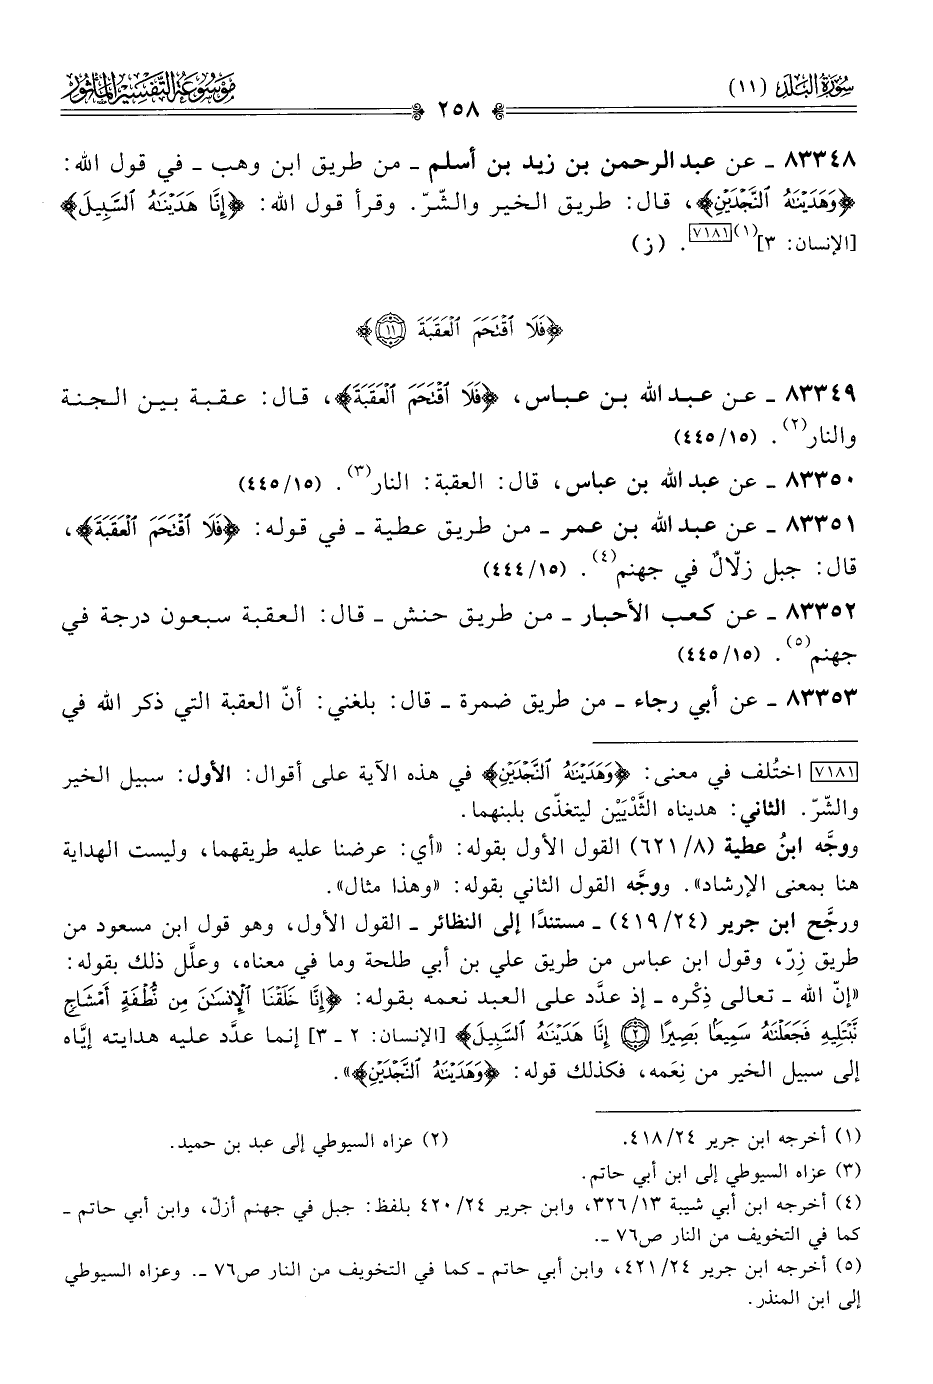 سُورَةُ البَلَد (١١)
٢٥٨
مَوْسُوعَةُ التَّفْسِيرِ المَأْثُور
٨٣٣٤٨ ـ عن عبد الرحمن بن زيد بن أسلم ـ من طريق ابن وهب ـ في قول الله:
﴿وَهَدَيْنَٰهُ ٱلنَّجْدَيْنِ﴾، قال: طريق الخير والشّرّ. وقرأ قول الله: ﴿إِنَّا هَدَيْنَٰهُ ٱلسَّبِيلَ﴾
[الإنسان: ٣](١)[٧١٨١]. (ز)
﴿فَلَا ٱقْتَحَمَ ٱلْعَقَبَةَ ١١﴾
٨٣٣٤٩ ـ عن عبد الله بن عباس، ﴿فَلَا ٱقْتَحَمَ ٱلْعَقَبَةَ﴾، قال: عقبة بين الجنة
والنار(٢). (٤٤٥/١٥)
٨٣٣٥٠ ـ عن عبد الله بن عباس، قال: العقبة: النار(٣). (٤٤٥/١٥)
٨٣٣٥١ ـ عن عبد الله بن عمر ـ من طريق عطية ـ في قوله: ﴿فَلَا ٱقْتَحَمَ ٱلْعَقَبَةَ﴾،
قال: جبل زلّالٌ في جهنم(٤). (٤٤٤/١٥)
٨٣٣٥٢ ـ عن كعب الأحبار ـ من طريق حنش ـ قال: العقبة سبعون درجة في
جهنم(٥). (٤٤٥/١٥)
٨٣٣٥٣ ـ عن أبي رجاء ـ من طريق ضمرة ـ قال: بلغني: أنّ العقبة التي ذكر الله في
[٧١٨١] اختُلف في معنى: ﴿وَهَدَيْنَٰهُ ٱلنَّجْدَيْنِ﴾ في هذه الآية على أقوال: الأول: سبيل الخير
والشّرّ. الثاني: هديناه الثَّدْيَيْن ليتغذّى بلبنهما.
ووجَّه ابنُ عطية (٦٢١/٨) القول الأول بقوله: «أي: عرضنا عليه طريقهما، وليست الهداية
هنا بمعنى الإرشاد». ووجَّه القول الثاني بقوله: «وهذا مثال».
ورجَّح ابن جرير (٤١٩/٢٤) ـ مستندًا إلى النظائر ـ القول الأول، وهو قول ابن مسعود من
طريق زِرّ، وقول ابن عباس من طريق علي بن أبي طلحة وما في معناه، وعلَّل ذلك بقوله:
«إنّ الله ـ تعالى ذِكْره ـ إذ عدَّد على العبد نعمه بقوله: ﴿إِنَّا خَلَقْنَا ٱلْإِنسَٰنَ مِن نُّطْفَةٍ أَمْشَاجٍ
نَّبْتَلِيهِ فَجَعَلْنَٰهُ سَمِيعًۢا بَصِيرًا ٢ إِنَّا هَدَيْنَٰهُ ٱلسَّبِيلَ﴾ [الإنسان: ٢ ـ ٣] إنما عدَّد عليه هدايته إيَّاه
إلى سبيل الخير من نِعَمه، فكذلك قوله: ﴿وَهَدَيْنَٰهُ ٱلنَّجْدَيْنِ﴾».
(١) أخرجه ابن جرير ٤١٨/٢٤. (٢) عزاه السيوطي إلى عبد بن حميد.
(٣) عزاه السيوطي إلى ابن أبي حاتم.
(٤) أخرجه ابن أبي شيبة ٣٢٦/١٣، وابن جرير ٤٢٠/٢٤ بلفظ: جبل في جهنم أزلّ، وابن أبي حاتم ـ
كما في التخويف من النار ص٧٦ ـ.
(٥) أخرجه ابن جرير ٤٢١/٢٤، وابن أبي حاتم ـ كما في التخويف من النار ص٧٦ ـ. وعزاه السيوطي
إلى ابن المنذر.